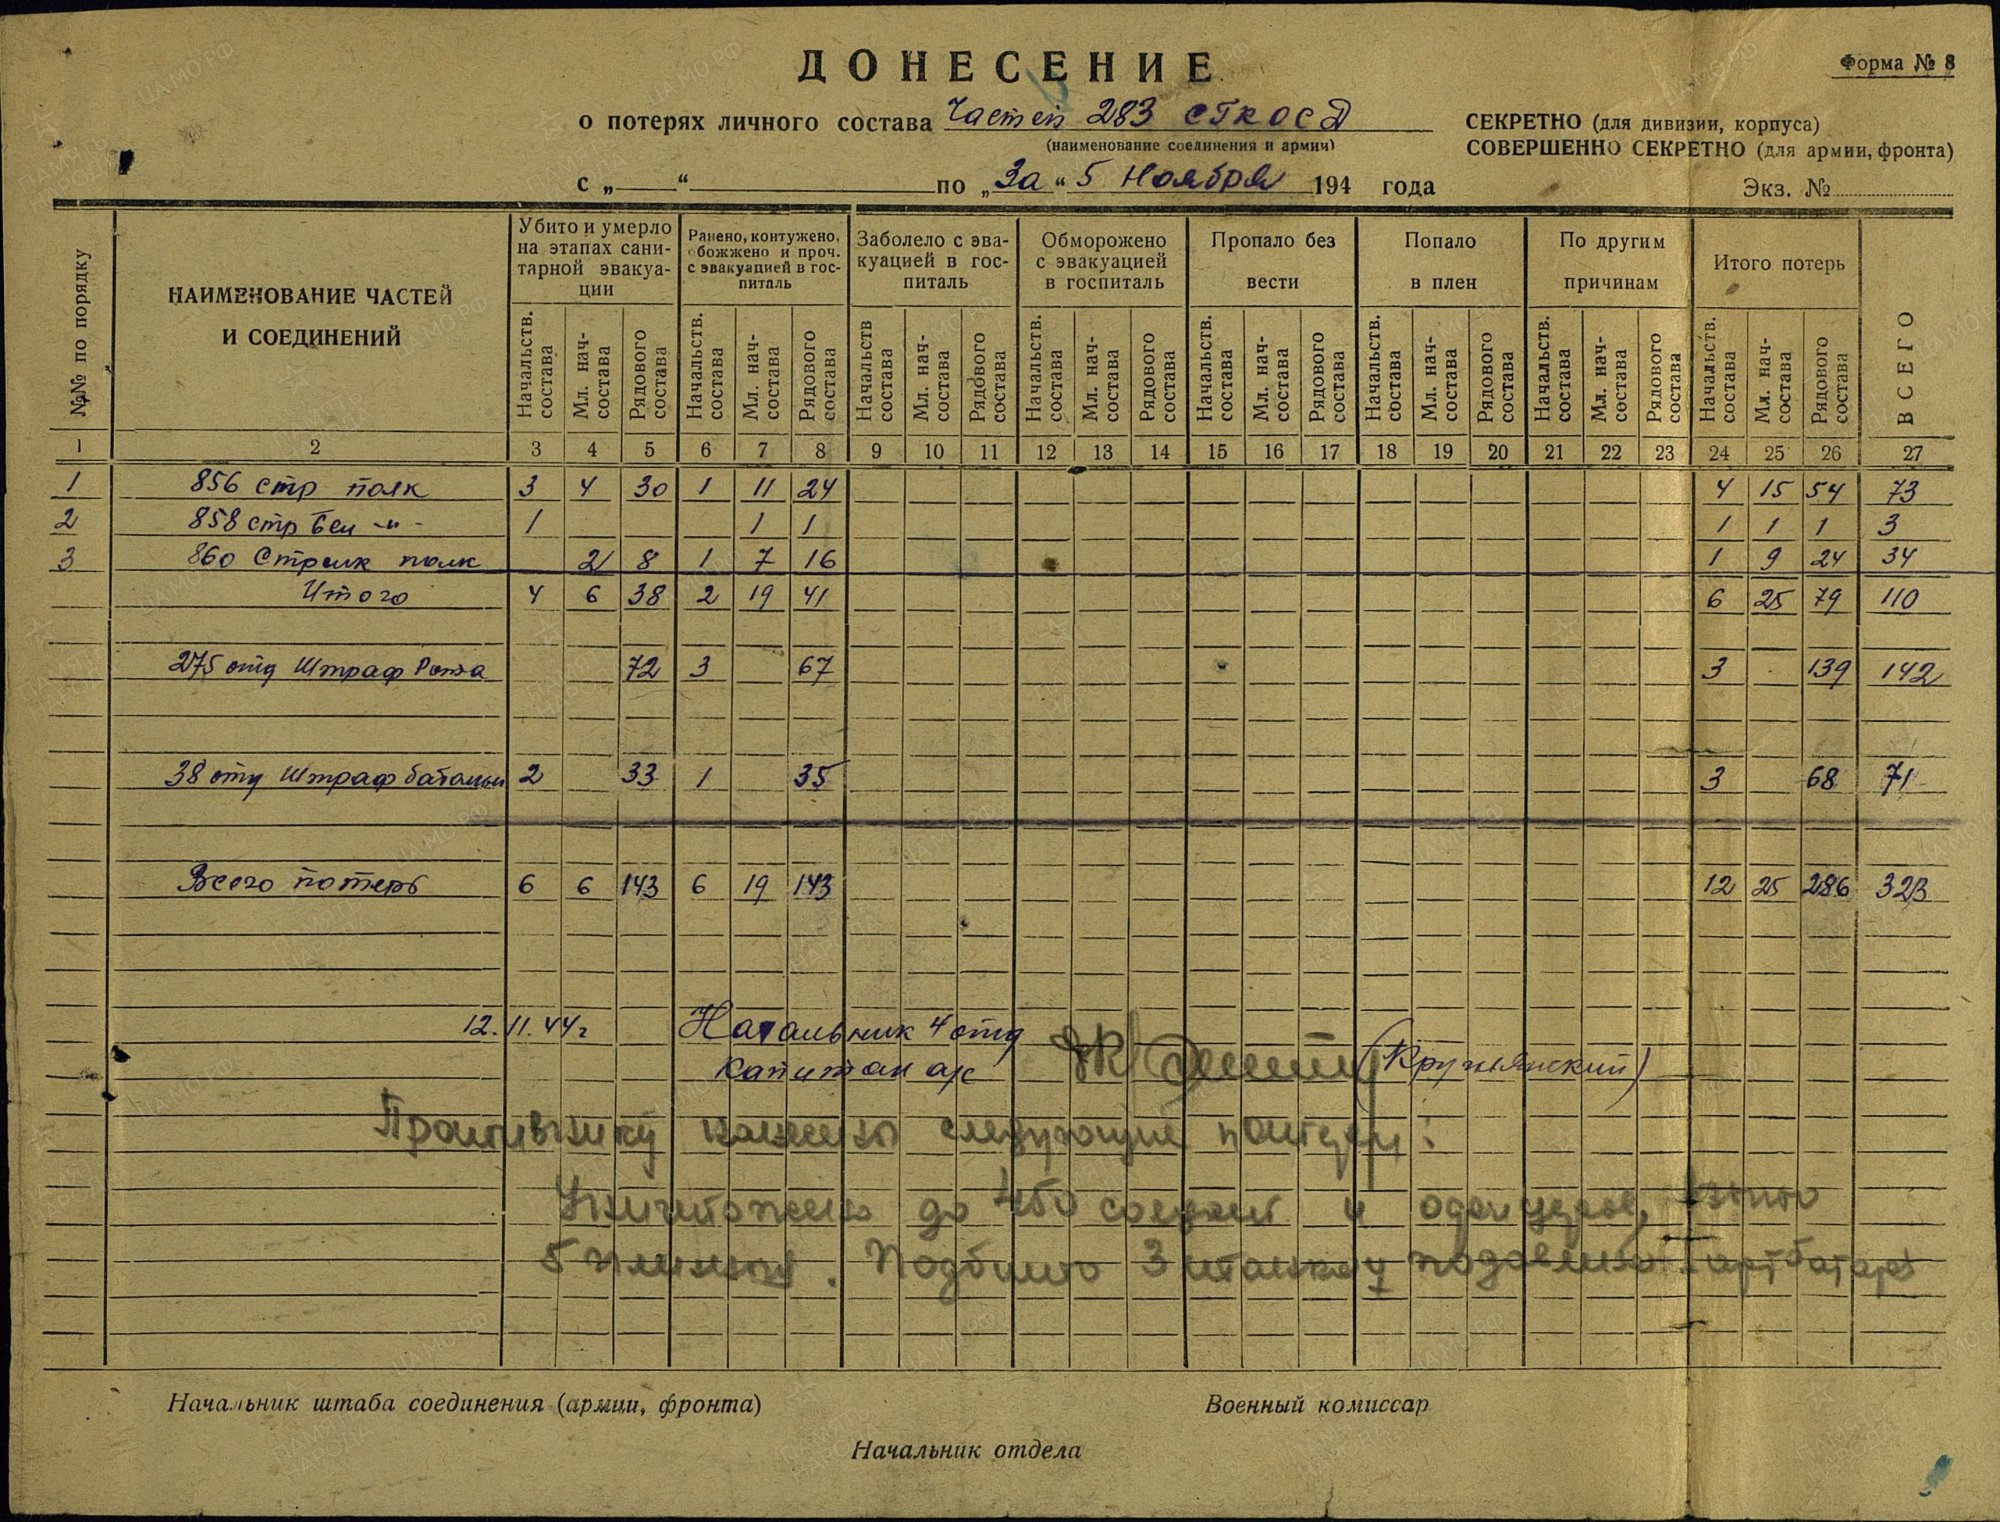 ДОНЕСЕНИЕ
Форма № 8
о потерях личного состава Частей 283 СГКОСД
(наименование соединения и армии)
СЕКРЕТНО (для дивизии, корпуса)
СОВЕРШЕННО СЕКРЕТНО (для армии, фронта)
с „ “ по „За“ 5 Ноября 194 года
Экз. №
№№ по порядку
НАИМЕНОВАНИЕ ЧАСТЕЙ
И СОЕДИНЕНИЙ
Убито и умерло
на этапах сани-
тарной эвакуа-
ции
Ранено, контужено,
обожжено и проч.
с эвакуацией в гос-
питаль
Заболело с эва-
куацией в гос-
питаль
Обморожено
с эвакуацией
в госпиталь
Пропало без
вести
Попало
в плен
По другим
причинам
Итого потерь
ВСЕГО
Начальств. состава Мл. нач-состава Рядового состава Начальств. состава Мл. нач-состава Рядового состава Начальств состава Мл. нач-состава Рядового состава Начальств. состава Мл. нач-состава Рядового состава Начальств. состава Мл. нач-состава Рядового состава Начальств. состава Мл. нач-состава Рядового состава Начальств. состава Мл. нач-состава Рядового состава Начальств. состава Мл. нач-состава Рядового состава
1 2 3 4 5 6 7 8 9 10 11 12 13 14 15 16 17 18 19 20 21 22 23 24 25 26 27
1 856 стр полк 3 4 30 1 11 24 4 15 54 73
2 858 стр -"- 1 1 1 1 1 1 3
3 860 Стрелк полк 2 8 1 7 16 1 9 24 34
Итого 4 6 38 2 19 41 6 25 79 110
275 отд Штраф Рота 72 3 67 3 139 142
38 отд Штраф батальон 2 33 1 35 3 68 71
Всего потерь 6 6 143 6 19 143 12 25 286 323
12.11.44г Начальник 4 отд
Капитан а/с (Кружлянский)
Противнику нанесены следующие потери:
Уничтожено до 450 солдат и офицеров, взято
5 пленных. Подбито 3 танка и подавлена артбатарея
Начальник штаба соединения (армии, фронта)
Военный комиссар
Начальник отдела